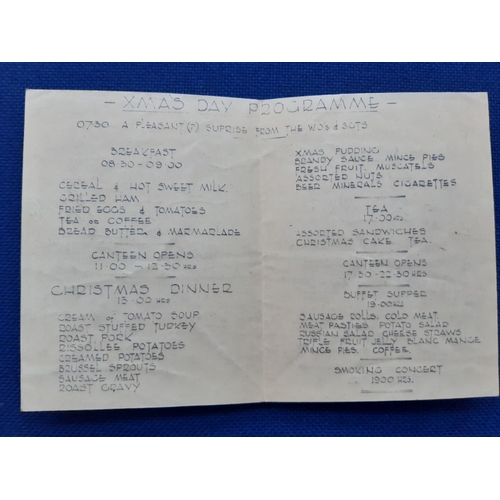 - XMAS DAY PROGRAMME -
0730 A PLEASANT (?) SUPRISE FROM THE WO's & SGTS
BREAKFAST
08.30 - 09.00
CEREAL & HOT SWEET MILK.
GRILLED HAM
FRIED EGGS & TOMATOES
TEA OR COFFEE
BREAD BUTTER & MARMARLADE
CANTEEN OPENS
11.00 - 12.30 HRS
CHRISTMAS DINNER
13.00 HRS
CREAM OF TOMATO SOUP
ROAST STUFFED TURKEY
ROAST PORK
RISSOLLEE POTATOES
CREAMED POTATOES
BRUSSEL SPROUTS
SAUSAGE MEAT
ROAST GRAVY
XMAS PUDDING
BRANDY SAUCE MINCE PIES
FRESH FRUIT MUSCATELS
ASSORTED NUTS
BEER MINERALS CIGARETTES
TEA
17.00 HRS
ASSORTED SANDWICHES
CHRISTMAS CAKE TEA.
CANTEEN OPENS
17.30 - 22.30 HRS
BUFFET SUPPER
19.00 HRS
SAUSAGE ROLLS. COLD MEAT
MEAT PASTIES POTATO SALAD
RUSSIAN SALAD CHEESE STRAWS
TRIPLE FRUIT JELLY BLANC MANGE
MINCE PIES. COFFEE.
SMOKING CONCERT
1900 HRS.